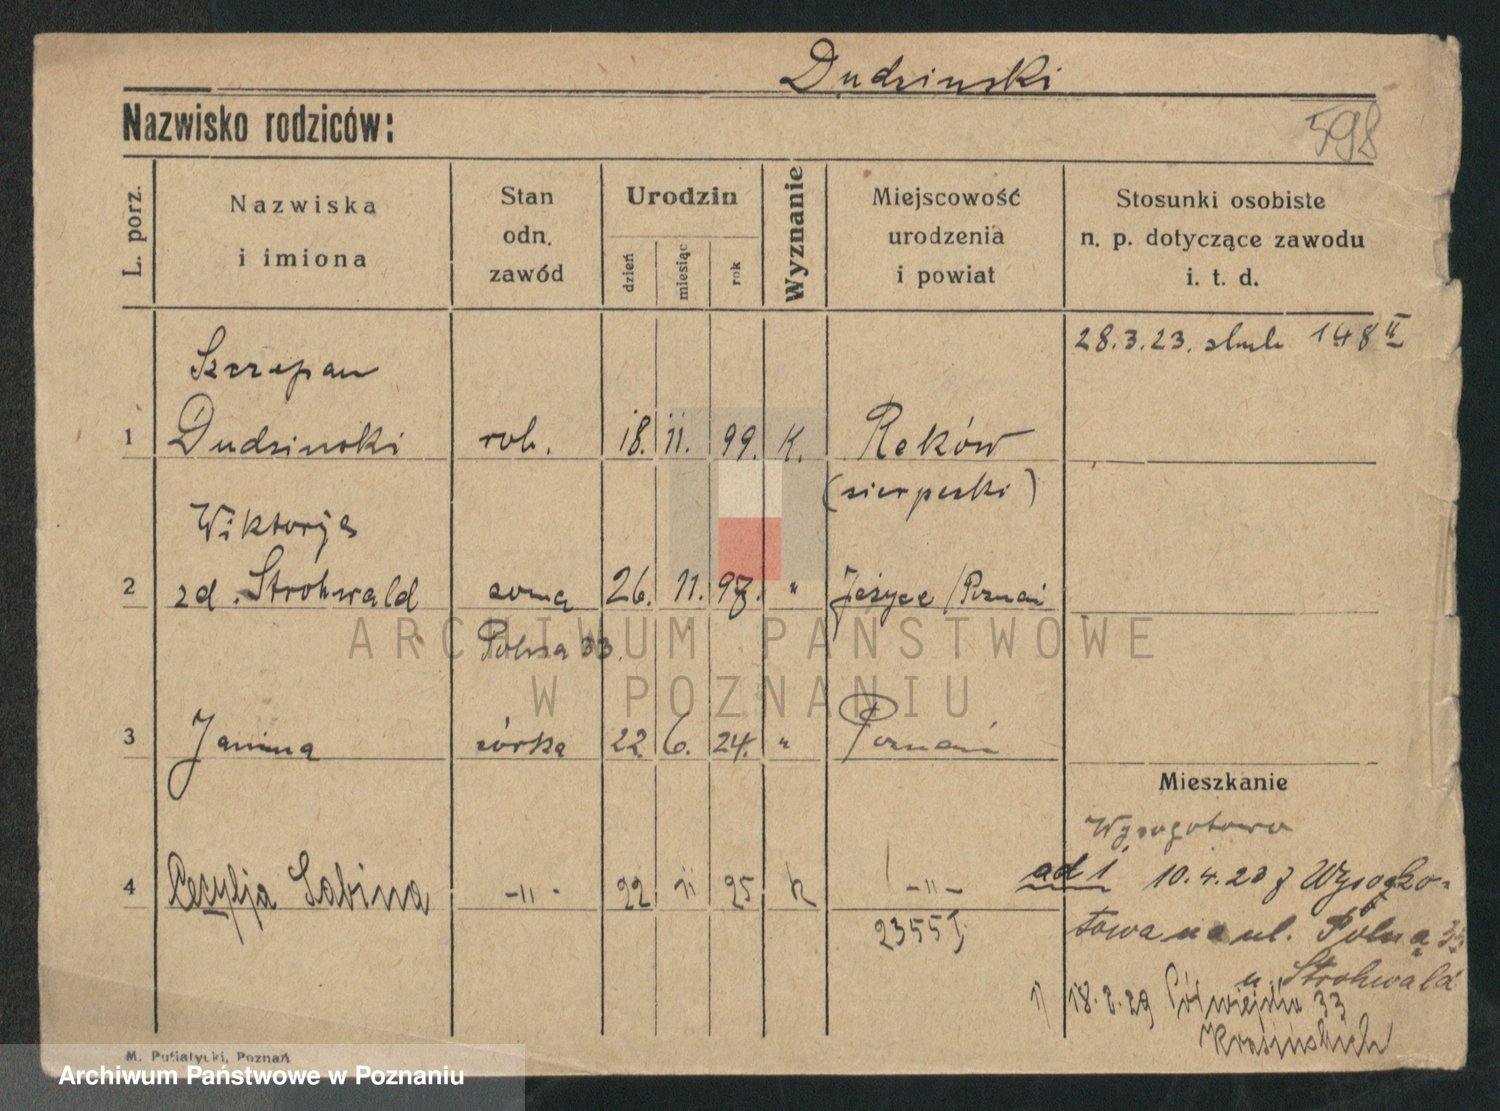 Dudzinski
Nazwisko rodziców:
598
L. porz.
Nazwiska
i imiona
Stan
odn.
zawód
Urodzin
dzień
miesiąc
rok
Wyznanie
Miejscowość
urodzenia
i powiat
Stosunki osobiste
n. p. dotyczące zawodu
i. t. d.
28.3.23. slub 148 II
Szczepan
1 Dudzinski rob. 18. 11. 99. K. Reków
(sierpecki)
Wiktorja
2 zd. Strohwald żona 26. 11. 97. " Jeżyce / Poznań
Polna 33.
3 Janina córka 22 6. 24. " Poznań
Mieszkanie
Wysogotowo
4 Cecylja Sabina -"- 22 11 25 k -"-
ad 1 10.4.23 z Wysogo-
towa na ul. Polną 33
u Strohwald
2355 I.
1) 18.2.29 Półwiejska 33
Krasińskich
M. Putiatycki, Poznań
ARCHIWUM PAŃSTWOWE
W POZNANIU
Archiwum Państwowe w Poznaniu